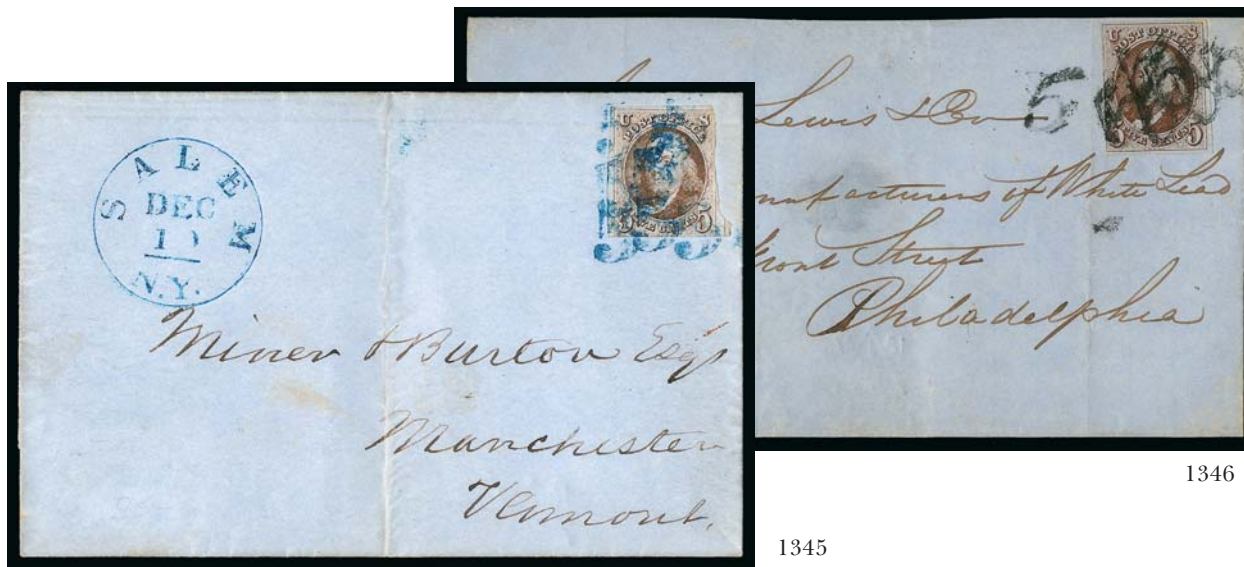 SALEM
DEC
N.Y.
U S
POST OFFICE
FIVE CENTS
5 5
Miner & Burton Esqs
Manchester
Vermont.
1345
5
U S
POST OFFICE
FIVE CENTS
5 5
Lewis & Co
of White Lead
Front Street
Philadelphia
1346